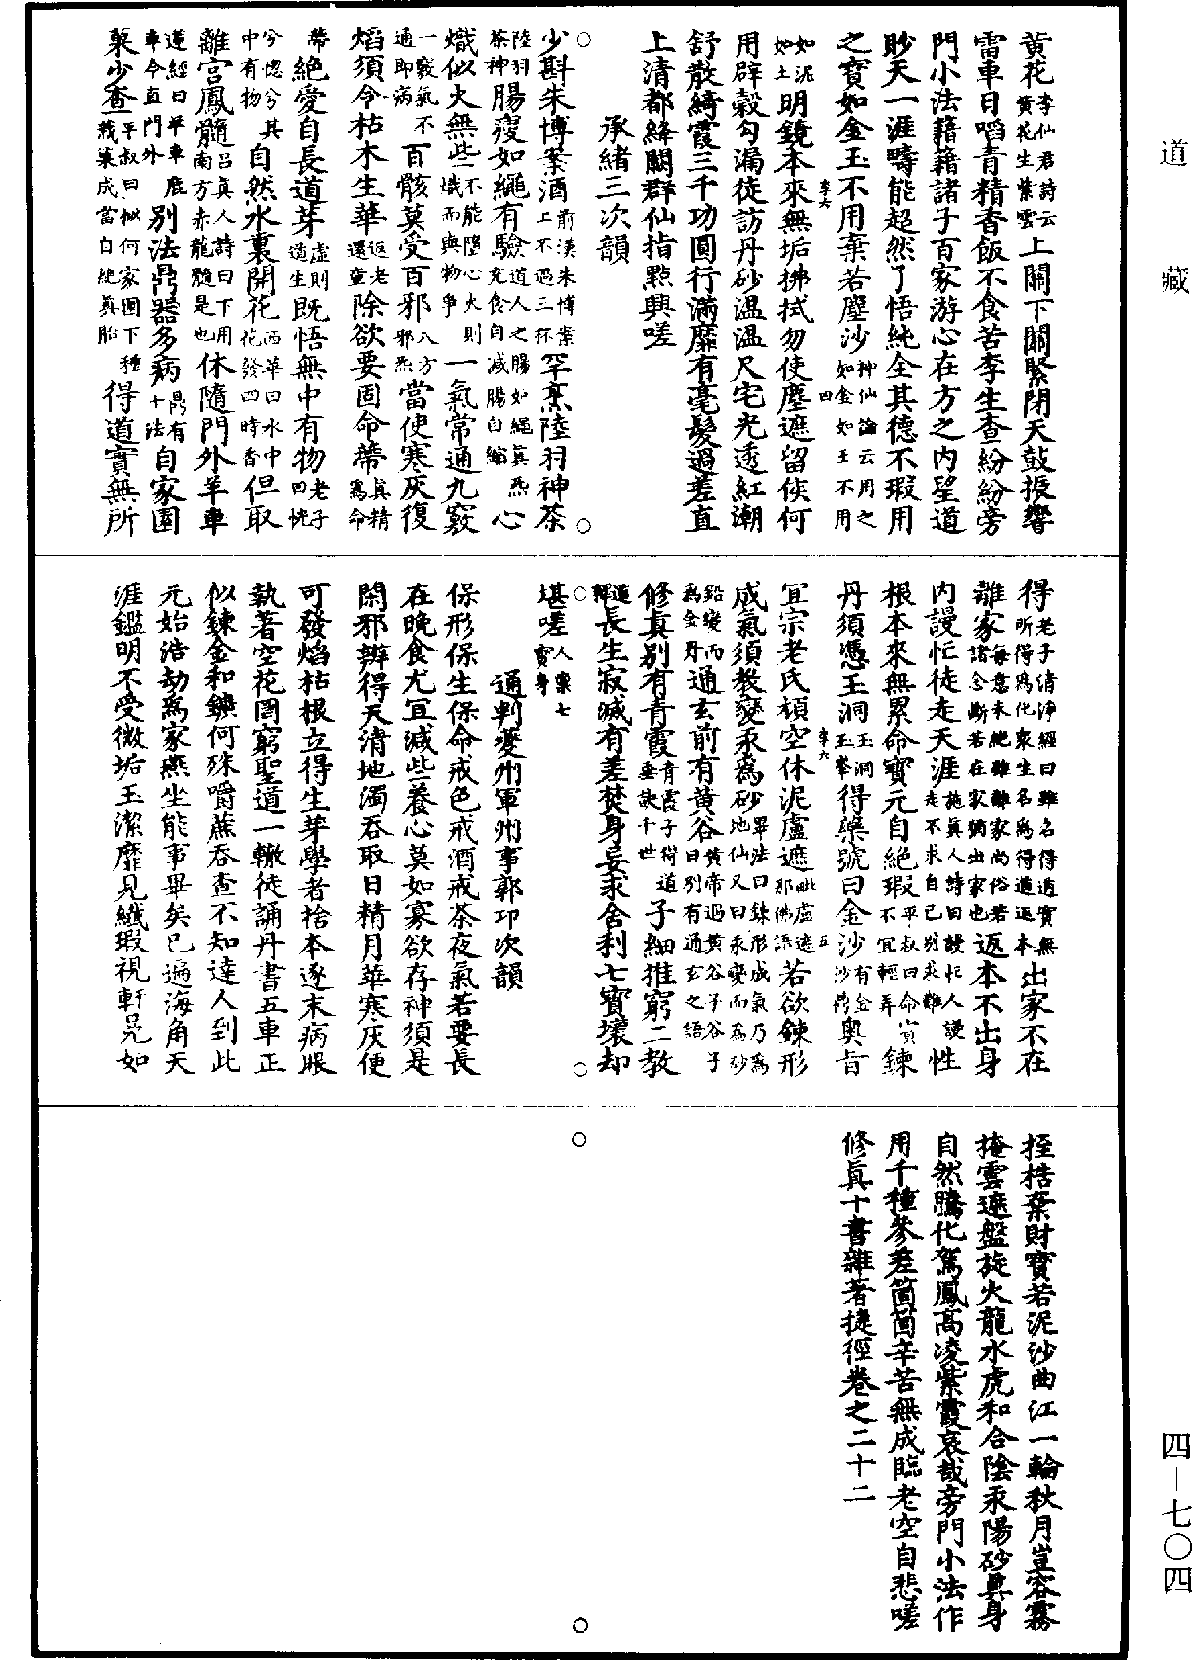 道藏
四—七〇四
黄花李仙君詩云黄花生紫雲上關下關緊閉天鼓振響
雷車日啗青精香飯不食苦李生查紛紛旁
門小法藉藉諸子百家游心在方之內望道
眇天一涯疇能超然了悟純全其德不瑕用
之寶如金玉不用棄若塵沙神仙論云用之如金如玉不用
如泥如土明鏡本來無垢拂拭勿使塵遮留侯何
用辟穀勾漏徒訪丹砂溫溫尺宅光透紅潮
舒散綺霞三千功圓行滿靡有毫髮過差直
上清都絳闕群仙指點興嗟
承緒三次韻
少斟朱博案酒前漢朱博案上不過三杯罕烹陸羽神茶
陸羽茶神腸瘦如繩有驗道人之腸如繩真炁充食自減腸自縮心
熾似火無些不能隨心火則熾而與物爭一氣常通九竅
一竅氣不通即病百骸莫受百邪八方邪炁當使寒灰復
焰須令枯木生華返老還童除欲要固命蒂真精為命
蒂絕愛自長道芽虛則道生既悟無中有物老子曰恍
兮惚兮其中有物自然水裏開花西華曰水中花發四時香但取
離宮鳳髓呂真人詩曰下用南方赤龍髓是也休隨門外羊車
蓮經曰羊車鹿車今直門外別法鼎器多病鼎有十法自家園
菓少查平叔曰似何家園下種栽菓成當自絕真胎得道實無所
得老子清淨經曰雖名得道實無所得為化眾生名為得道返本出家不在
離家每意未絕雖離家尚俗若諸念斷若在家猶出家也返本不出身
內謾忙徒走天涯施真人詩曰謾忙人謾走不求自己別求難性
根本來無累命寶元自絕瑕平叔曰命寶不宜輕弄鍊
丹須憑玉洞玉洞玉峯得藥號曰金沙有金沙沙鼎奧旨
宜宗老氏頑空休泥盧遮毗盧遮那佛源若欲鍊形
成氣須教變汞為砂畢法曰鍊形成氣乃為地仙又曰汞變而為砂
鉛變而為金丹通玄前有黄谷黄帝過黄谷子谷子曰別有通玄之語
修真別有青霞青霞子衍道垂訣千世子細推窮二教
道釋長生寂滅有差焚身妄求舍利七寶壞却
堪嗟人稟七寶身
通判夔州軍州事郭卭次韻
保形保生保命戒色戒酒戒茶夜氣若要長
在晚食尤宜減些養心莫如寡欲存神須是
閑邪辨得天清地濁吞取日精月華寒灰便
可發焰枯根立得生芽學者捨本逐末病眼
執著空花罔窮聖道一轍徒誦丹書五車正
似鍊金和鐵何殊嚼蔗吞查不知達人到此
元始浩劫為家燕坐能事畢矣已遍海角天
涯鑑明不受微垢玉潔靡見纖瑕視軒冕如
桎梏棄財寶若泥沙曲江一輪秋月豈容霧
掩雲遮盤旋火龍水虎和合陰汞陽砂異身
自然騰化駕鳳高凌紫霞哀哉旁門小法作
用千種參差箇箇辛苦無成臨老空自悲嗟
修真十書雜著捷徑卷之二十二